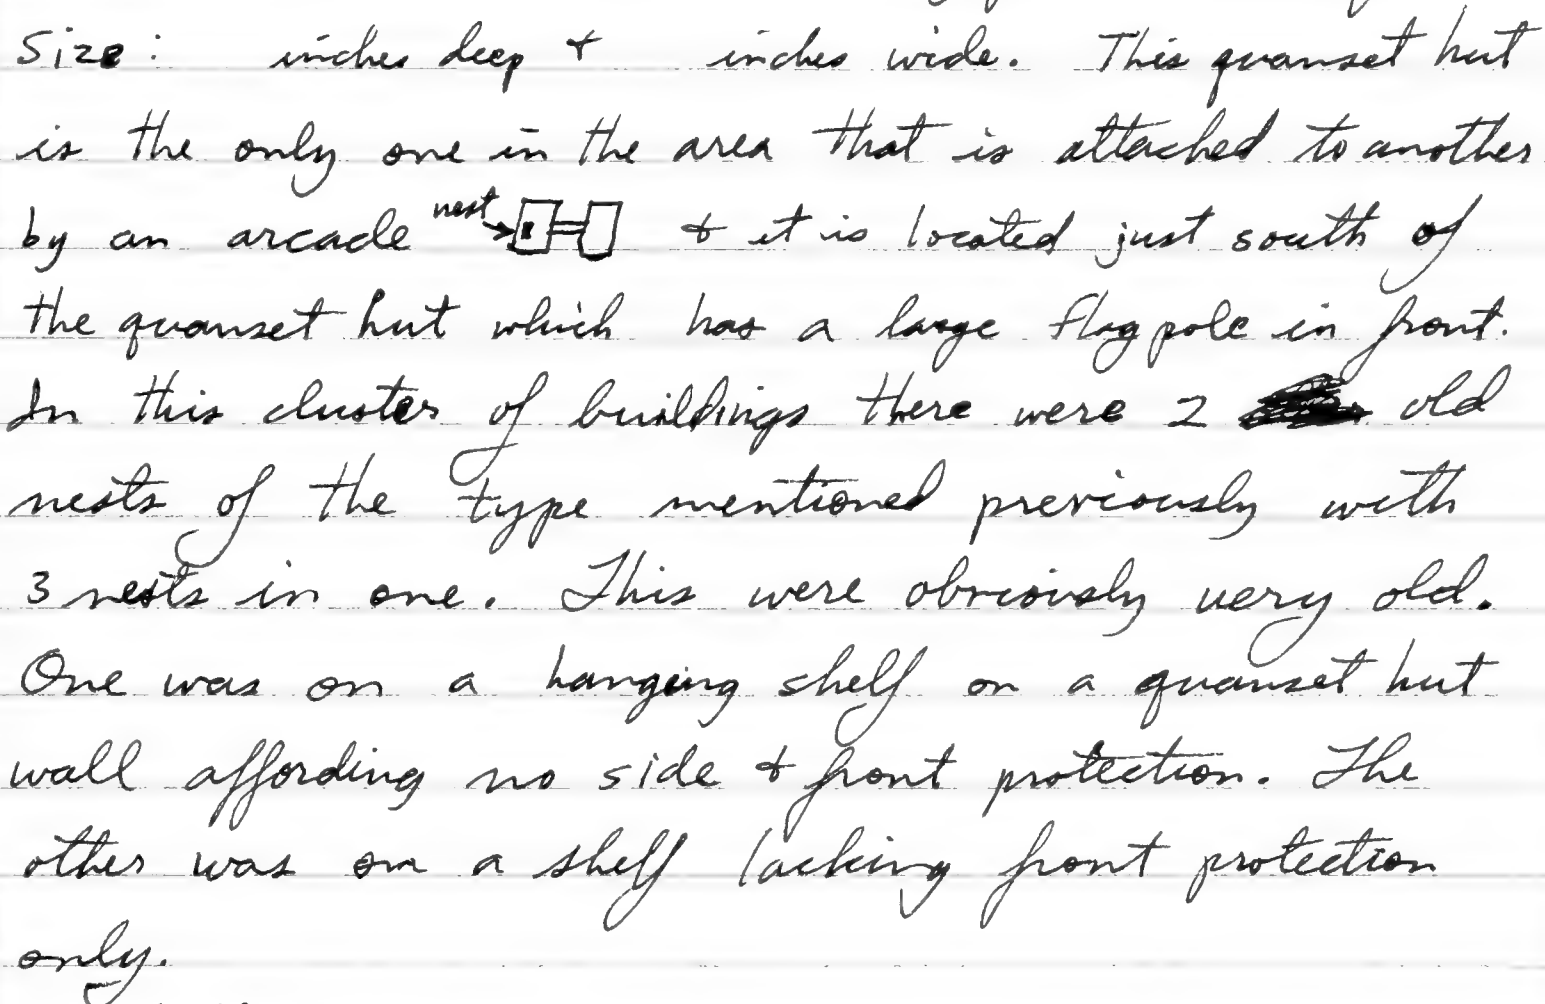 Size: inches deep & inches wide. This quanset hut
is the only one in the area that is attached to another
by an arcade nest & it is located just south of
the quanset hut which has a large flag pole in front.
In this cluster of buildings there were 2 old
nests of the type mentioned previously with
3 nests in one. This were obviously very old.
One was on a hanging shelf on a quanset hut
wall affording no side & front protection. The
other was on a shelf lacking front protection
only.